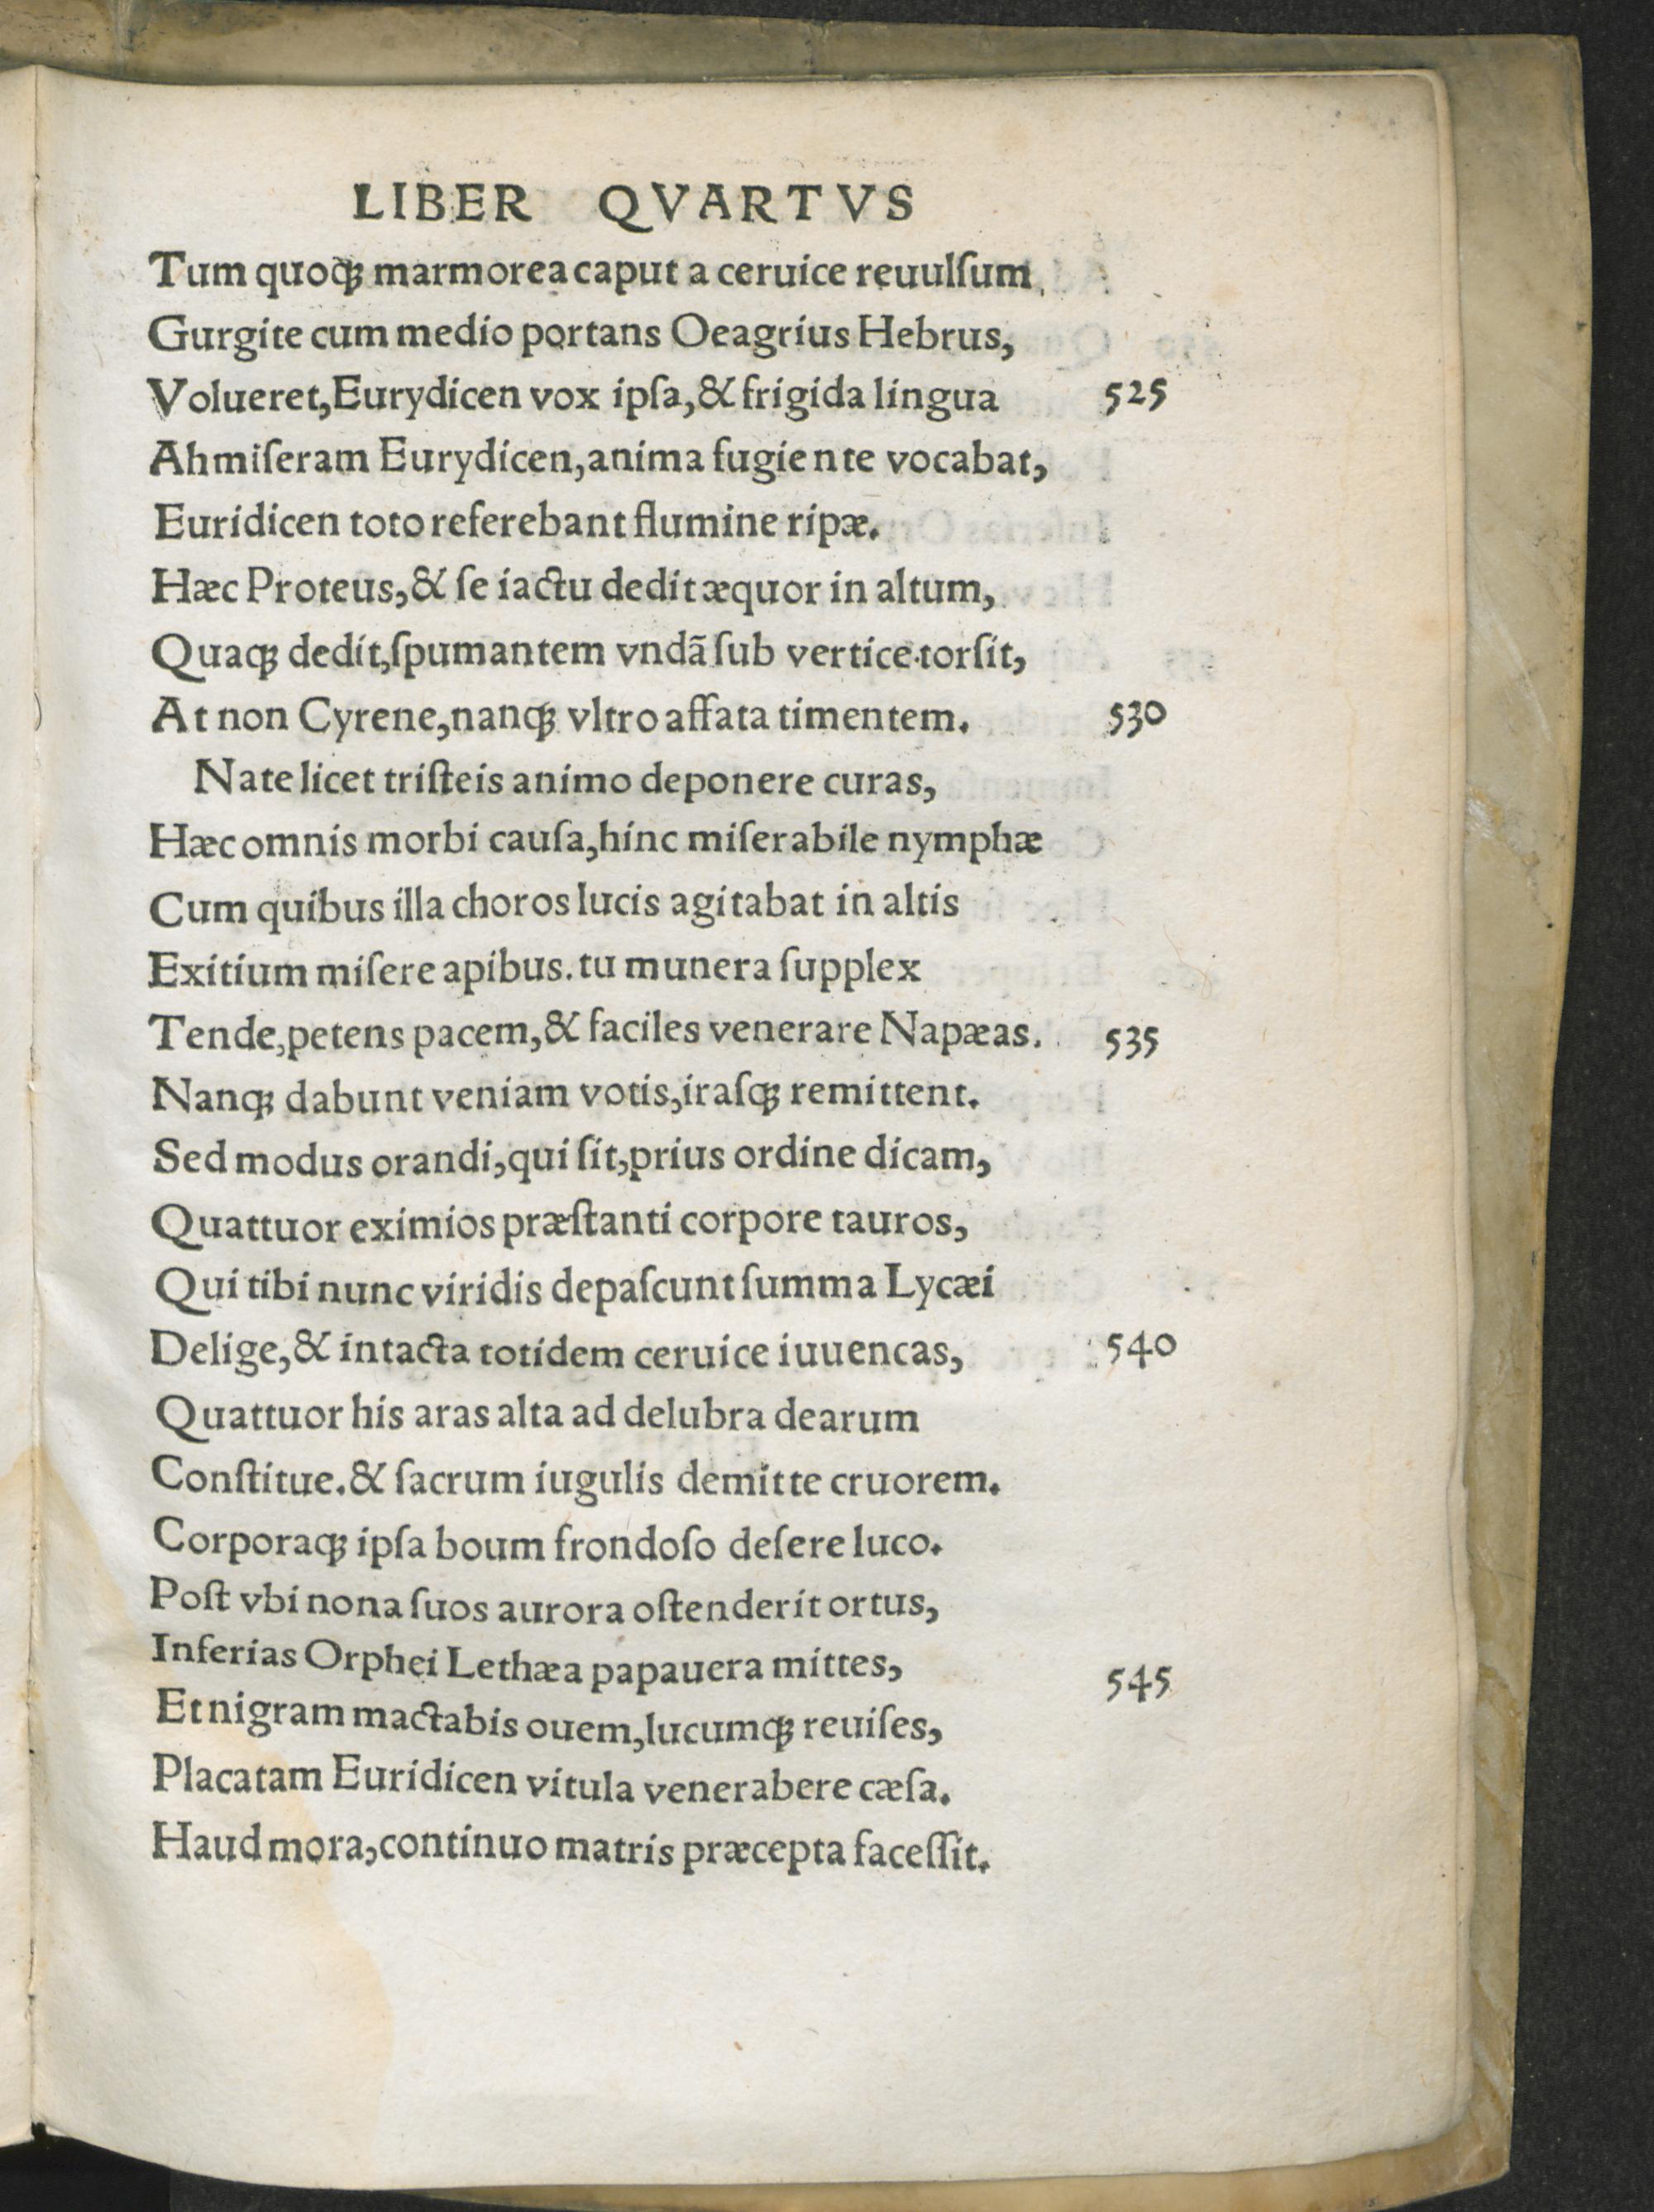 LIBER QVARTVS
Tum quoqꝫ marmorea caput a ceruice reuulſum
Gurgite cum medio portans Oeagrius Hebrus,
Volueret, Eurydicen vox ipſa, & frigida lingua 525
Ah miſeram Eurydicen, anima fugiente vocabat,
Euridicen toto referebant flumine ripæ.
Hæc Proteus, & ſe iactu dedit æquor in altum,
Quaqꝫ dedit, ſpumantem vndã ſub vertice torſit,
At non Cyrene, nanqꝫ vltro affata timentem. 530
Nate licet triſteis animo deponere curas,
Hæc omnis morbi cauſa, hinc miſerabile nymphæ
Cum quibus illa choros lucis agitabat in altis
Exitium miſere apibus. tu munera ſupplex
Tende, petens pacem, & faciles venerare Napæas. 535
Nanqꝫ dabunt veniam votis, iraſqꝫ remittent.
Sed modus orandi, qui ſit, prius ordine dicam,
Quattuor eximios præſtanti corpore tauros,
Qui tibi nunc viridis depaſcunt ſumma Lycæi
Delige, & intacta totidem ceruice iuuencas, 540
Quattuor his aras alta ad delubra dearum
Conſtitue. & ſacrum iugulis demitte cruorem.
Corporaqꝫ ipſa boum frondoſo deſere luco.
Poſt vbi nona ſuos aurora oſtenderit ortus,
Inferias Orphei Lethæa papauera mittes, 545
Et nigram mactabis ouem, lucumqꝫ reuiſes,
Placatam Euridicen vitula venerabere cæſa.
Haud mora, continuo matris præcepta faceſſit.